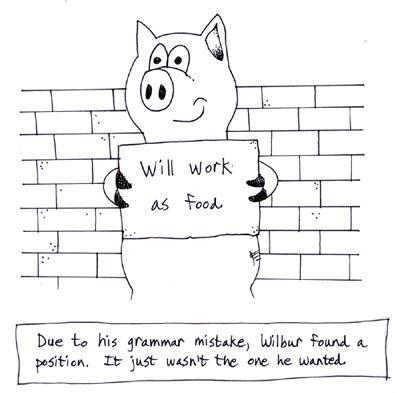 Will work
as food
Due to his grammar mistake, Wilbur found a
position. It just wasn't the one he wanted.